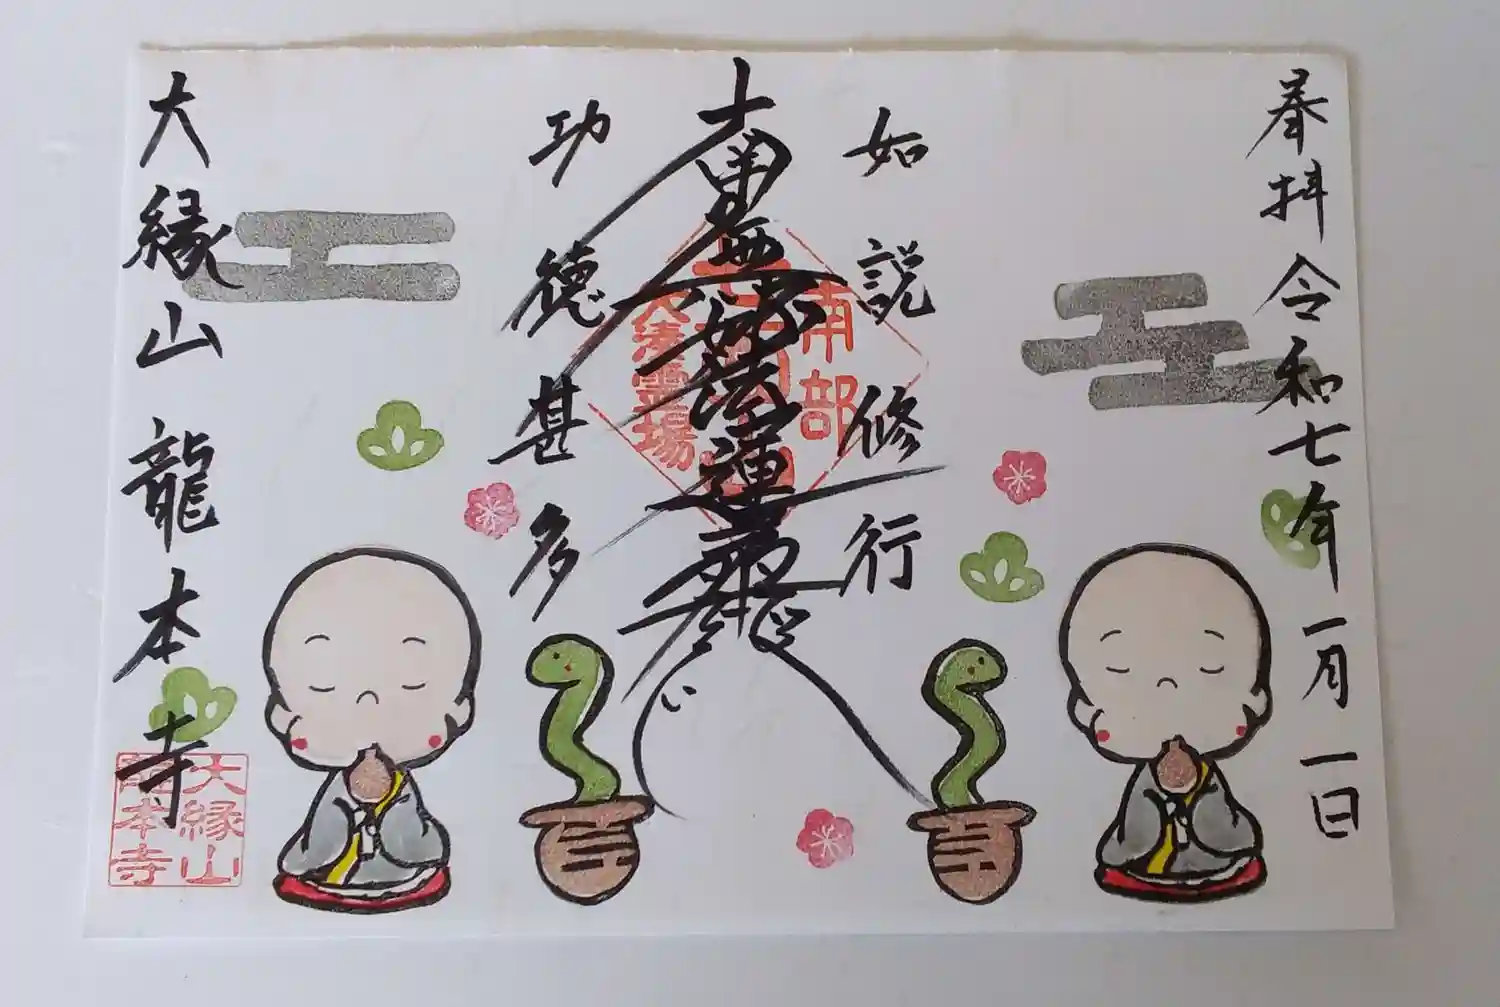 奉拝 令和七年一月一日
如説修行
南無妙法蓮華経
功徳甚多
大縁山 龍本寺
南部
大湊霊場
大縁山
龍本寺